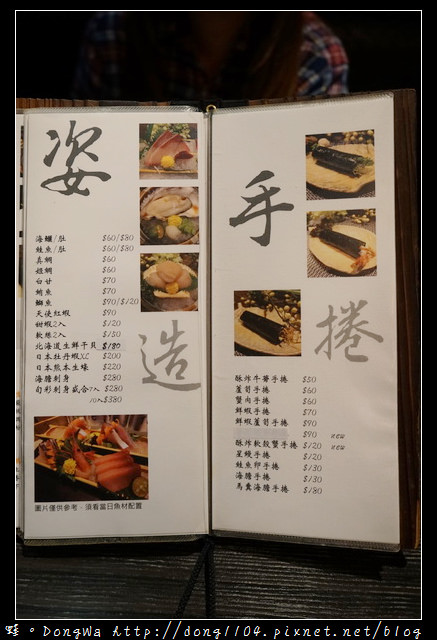 姿
造
海鱺/肚 $60/$80
鮭魚/肚 $60/$80
真鯛 $60
紐鯛 $60
白甘 $70
鮪魚 $70
鰤魚 $90/$120
天使紅蝦 $90
甜蝦2入 $120
軟絲2入 $150
北海道生鮮干貝 $180
日本牡丹蝦XL $200
日本熊本生蠔 $220
海膽刺身 $280
旬彩刺身盛合7入 $280
10入$380
圖片僅供參考，須看當日魚材配置
手
捲
酥炸牛蒡手捲 $50
蘆筍手捲 $60
蟹肉手捲 $60
鮮蝦手捲 $70
鮮蝦蘆筍手捲 $90
$90 new
酥炸軟殼蟹手捲 $120 new
星鰻手捲 $120
鮭魚卵手捲 $130
海膽手捲 $130
馬糞海膽手捲 $180
蛙。DongWa http://dong1104.pixnet.net/blog